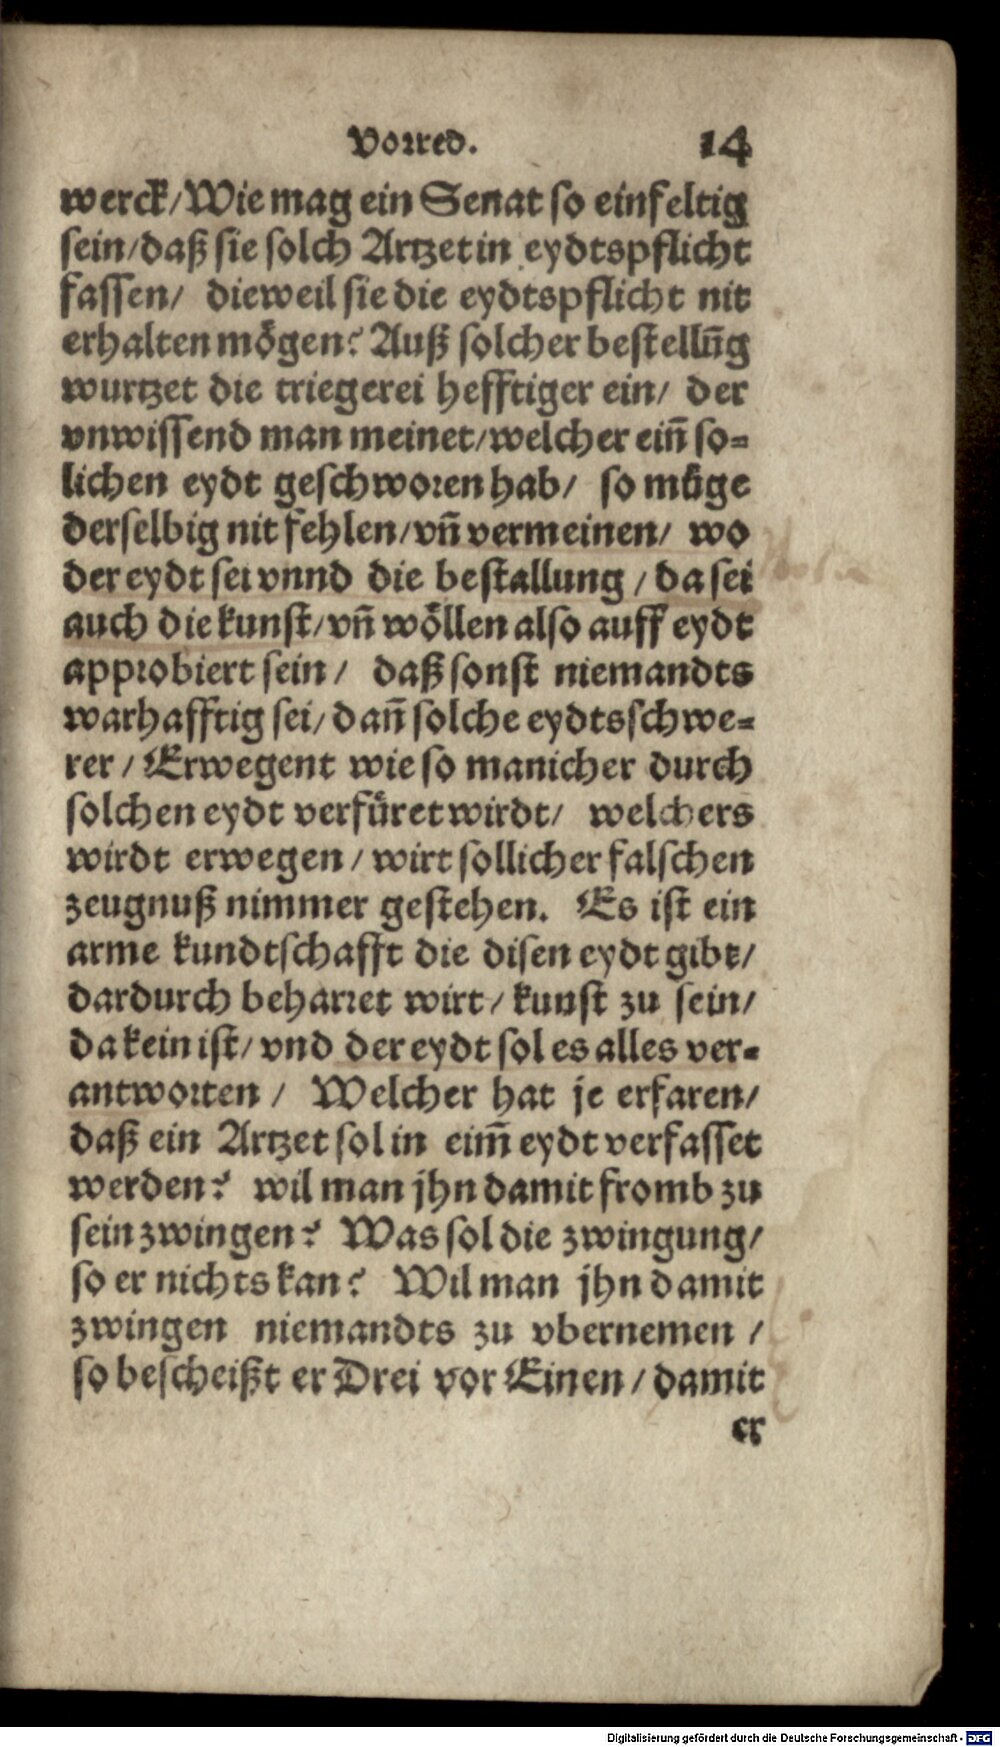 Vorred. 14
werck/Wie mag ein Senat so einfeltig
sein/daß sie solch Artzet in eydtspflicht
fassen/ dieweil sie die eydtspflicht nit
erhalten mögen? Auß solcher bestellūg
wurtzet die triegerei hefftiger ein/ der
vnwissend man meinet/welcher ein̄ so-
lichen eydt geschworen hab/ so möge
derselbig nit fehlen/vn̄ vermeinen/ wo
der eydt sei vnnd die bestallung/da sei
auch die kunst/vn̄ wöllen also auff eydt
approbiert sein/ daß sonst niemandts
warhafftig sei/dan̄ solche eydtsschwe-
rer/Erwegent wie so manicher durch
solchen eydt verfüret wirdt/ welchers
wirdt erwegen/wirt sollicher falschen
zeugnuß nimmer gestehen. Es ist ein
arme kundtschafft die disen eydt gibt/
dardurch beharret wirt/kunst zu sein/
da kein ist/vnd der eydt sol es alles ver-
antworten/ Welcher hat je erfaren/
daß ein Artzet sol in eim̄ eydt verfasset
werden? wil man jhn damit fromb zu
sein zwingen? Was sol die zwingung/
so er nichts kan? Wil man jhn damit
zwingen niemandts zu vbernemen/
so bescheißt er Drei vor Einen/damit
er
Digitalisierung gefördert durch die Deutsche Forschungsgemeinschaft - DFG